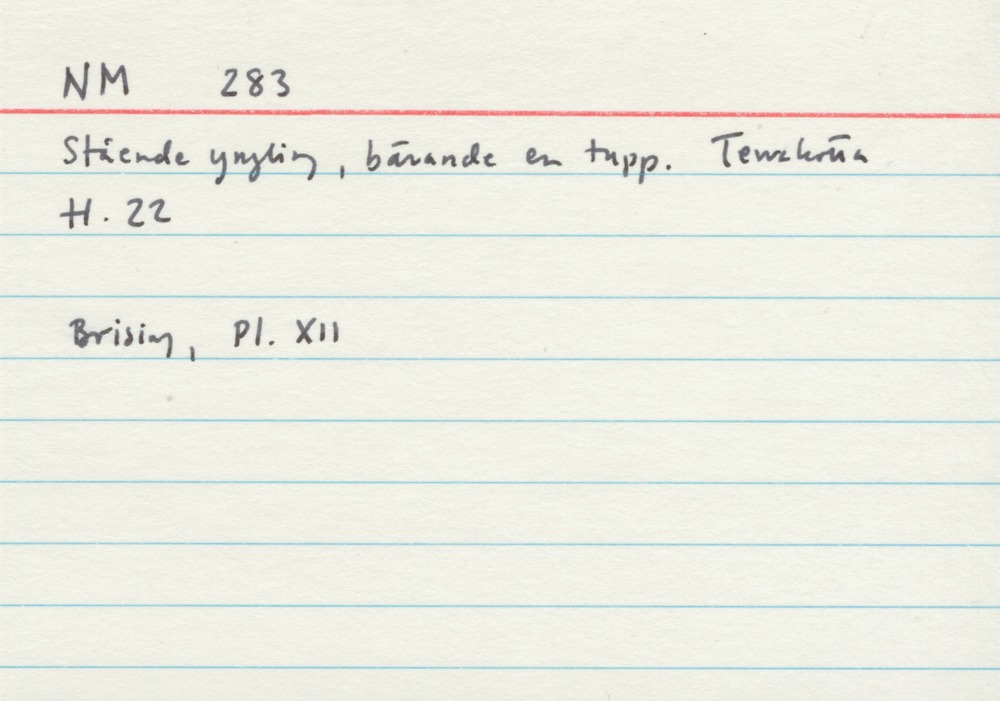 NM 283
Stående yngling, bärande en tupp. Terrakotta
H. 22
Brising, Pl. XII